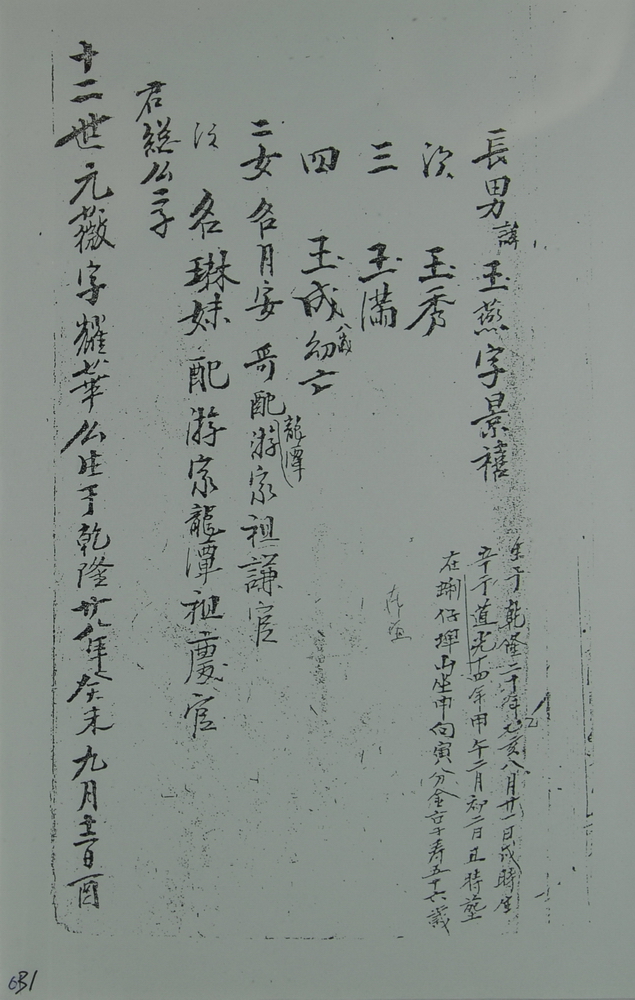 長男諱玉燕字景禧
生于乾隆二十年乙亥八月廿一日戌時
卒于道光十四年甲午二月初二日丑時塟
在 仔埤山坐申向寅分金 壽五十六歲
次 玉秀
三 玉滿
四 玉成幼亡 八歲
二女名月安哥配游家祖謙官 龍潭
次 名琳妹配游家龍潭祖慶官
君総公字
十二世元薇字耀華公生于乾隆廿八年癸未九月十二日酉
031